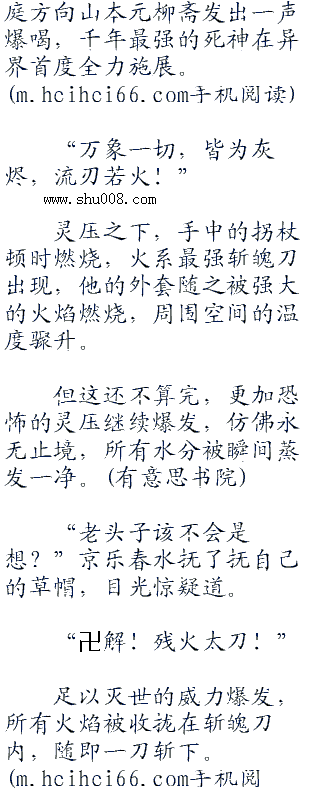 庭方向山本元柳斋发出一声
爆喝，千年最强的死神在异
界首度全力施展。
(m.hcihci66.com手机阅读)
“万象一切，皆为灰
烬，流刃若火！”
www.shu008.com
灵压之下，手中的拐杖
顿时燃烧，火系最强斩魄刀
出现，他的外套随之被强大
的火焰燃烧，周围空间的温
度骤升。
但这还不算完，更加恐
怖的灵压继续爆发，仿佛永
无止境，所有水分被瞬间蒸
发一净。(有意思书院)
“老头子该不会是
想？”京乐春水抚了抚自己
的草帽，目光惊疑道。
“卍解！残火太刀！”
足以灭世的威力爆发，
所有火焰被收拢在斩魄刀
内，随即一刀斩下。
(m.hcihci66.com手机阅